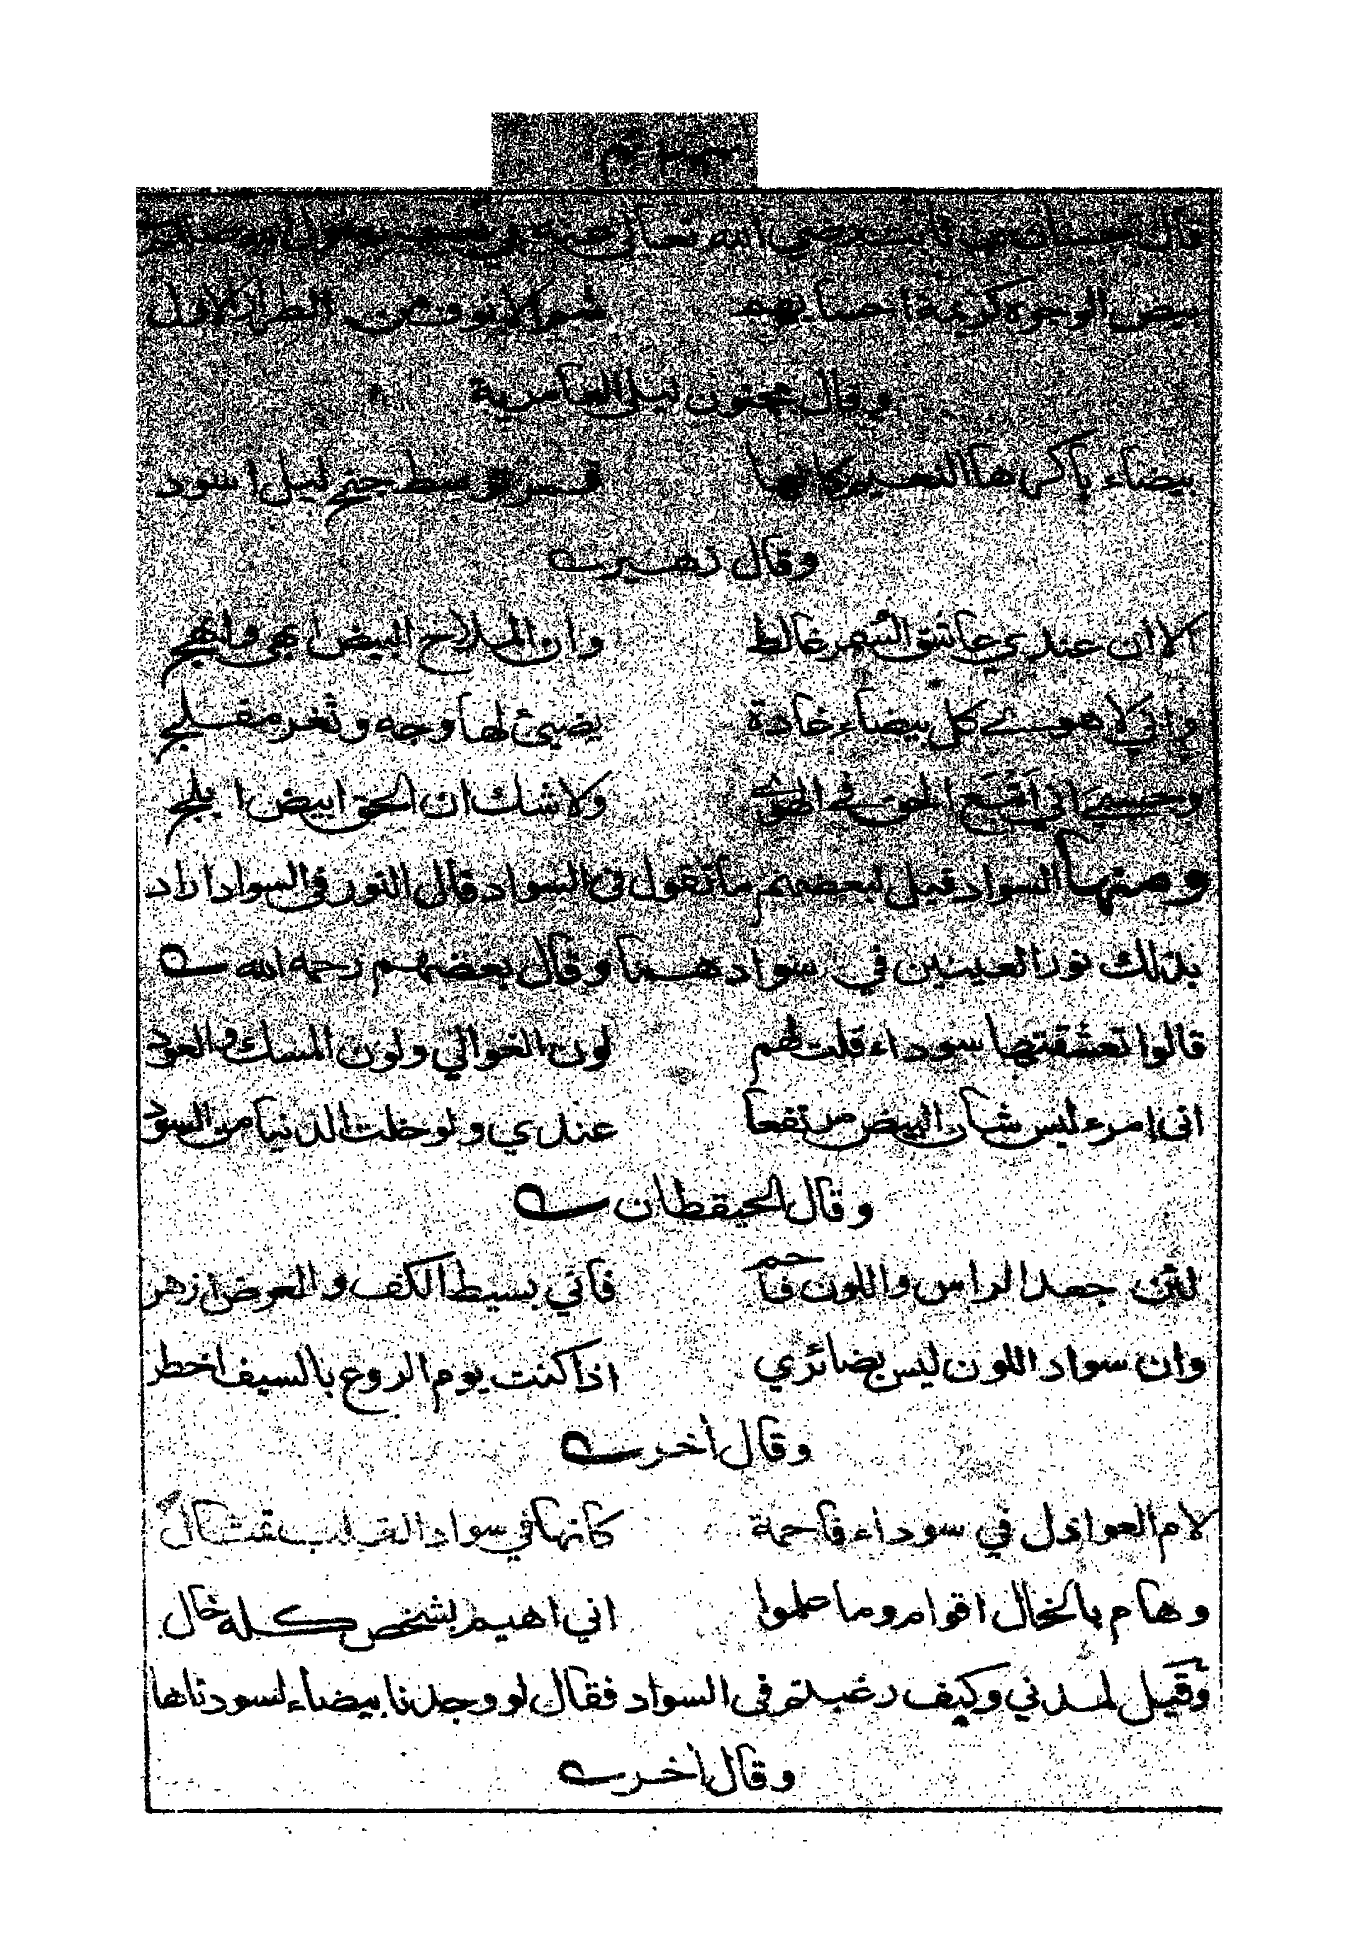 قال حسان بن ثابت رضي الله تعالى عنه في
بيض الوجوه كريمة احسابهم شم الانوف من الطراز الاول
وقال مجنون ليلى العامرية
بيضاء باكرها النعيم كانها قمر توسط جنح ليل اسود
وقال زهير
الا ان عندي عاشق السمر غالط وان الملاح البيض ابهى وابهج
واني لاهوى كل بيضاء غادة يضيئ لها وجه وثغر مفلج
وحسبي اني اتبع الحق في الهوى ولا شك ان الحق ابيض ابلج
ومنها السواد قيل لبعضهم ما تقول في السواد قال النور في السواد اراد
بذلك نور العينين في سوادهما وقال بعضهم رحمه الله
قالوا تعشقتها سوداء قلت لهم لون الغوالي ولون المسك والعود
اني امرء ليس شان البيض مرتفعا عندي ولو خلت الدنيا من السود
وقال الحيقطان
لئن جعد الراس واللون فاحم فاني بسيط الكف والعرض ازهر
وان سواد اللون ليس بضائري اذا كنت يوم الروع بالسيف اخطر
وقال أخر
لام العواذل في سوداء فاحمة كانها في سواد القلب تمثال
وهام بالخال اقوام وما علموا اني اهيم بشخص كله خال
وقيل لمدني وكيف رغبتم في السواد فقال لو وجدنا بيضاء لسودناها
وقال أخر